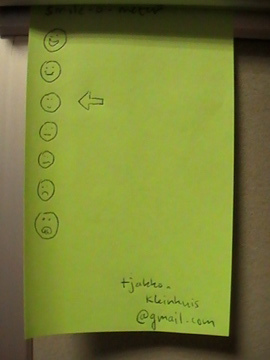 smile-o-meter
tjakko.
kleinhuis
@gmail.com